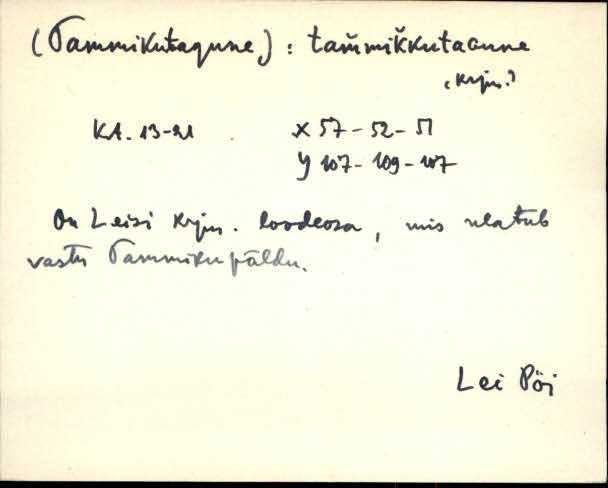 (Tammikutagune) : tam̆mik̆kutaGune
(krjm.)
KA. 13-21 X 57-52-51
Y 107-109-107
On Leisi krjm. loodeosa, mis ulatub
vastu Tammikupäldu.
Lei Pöi